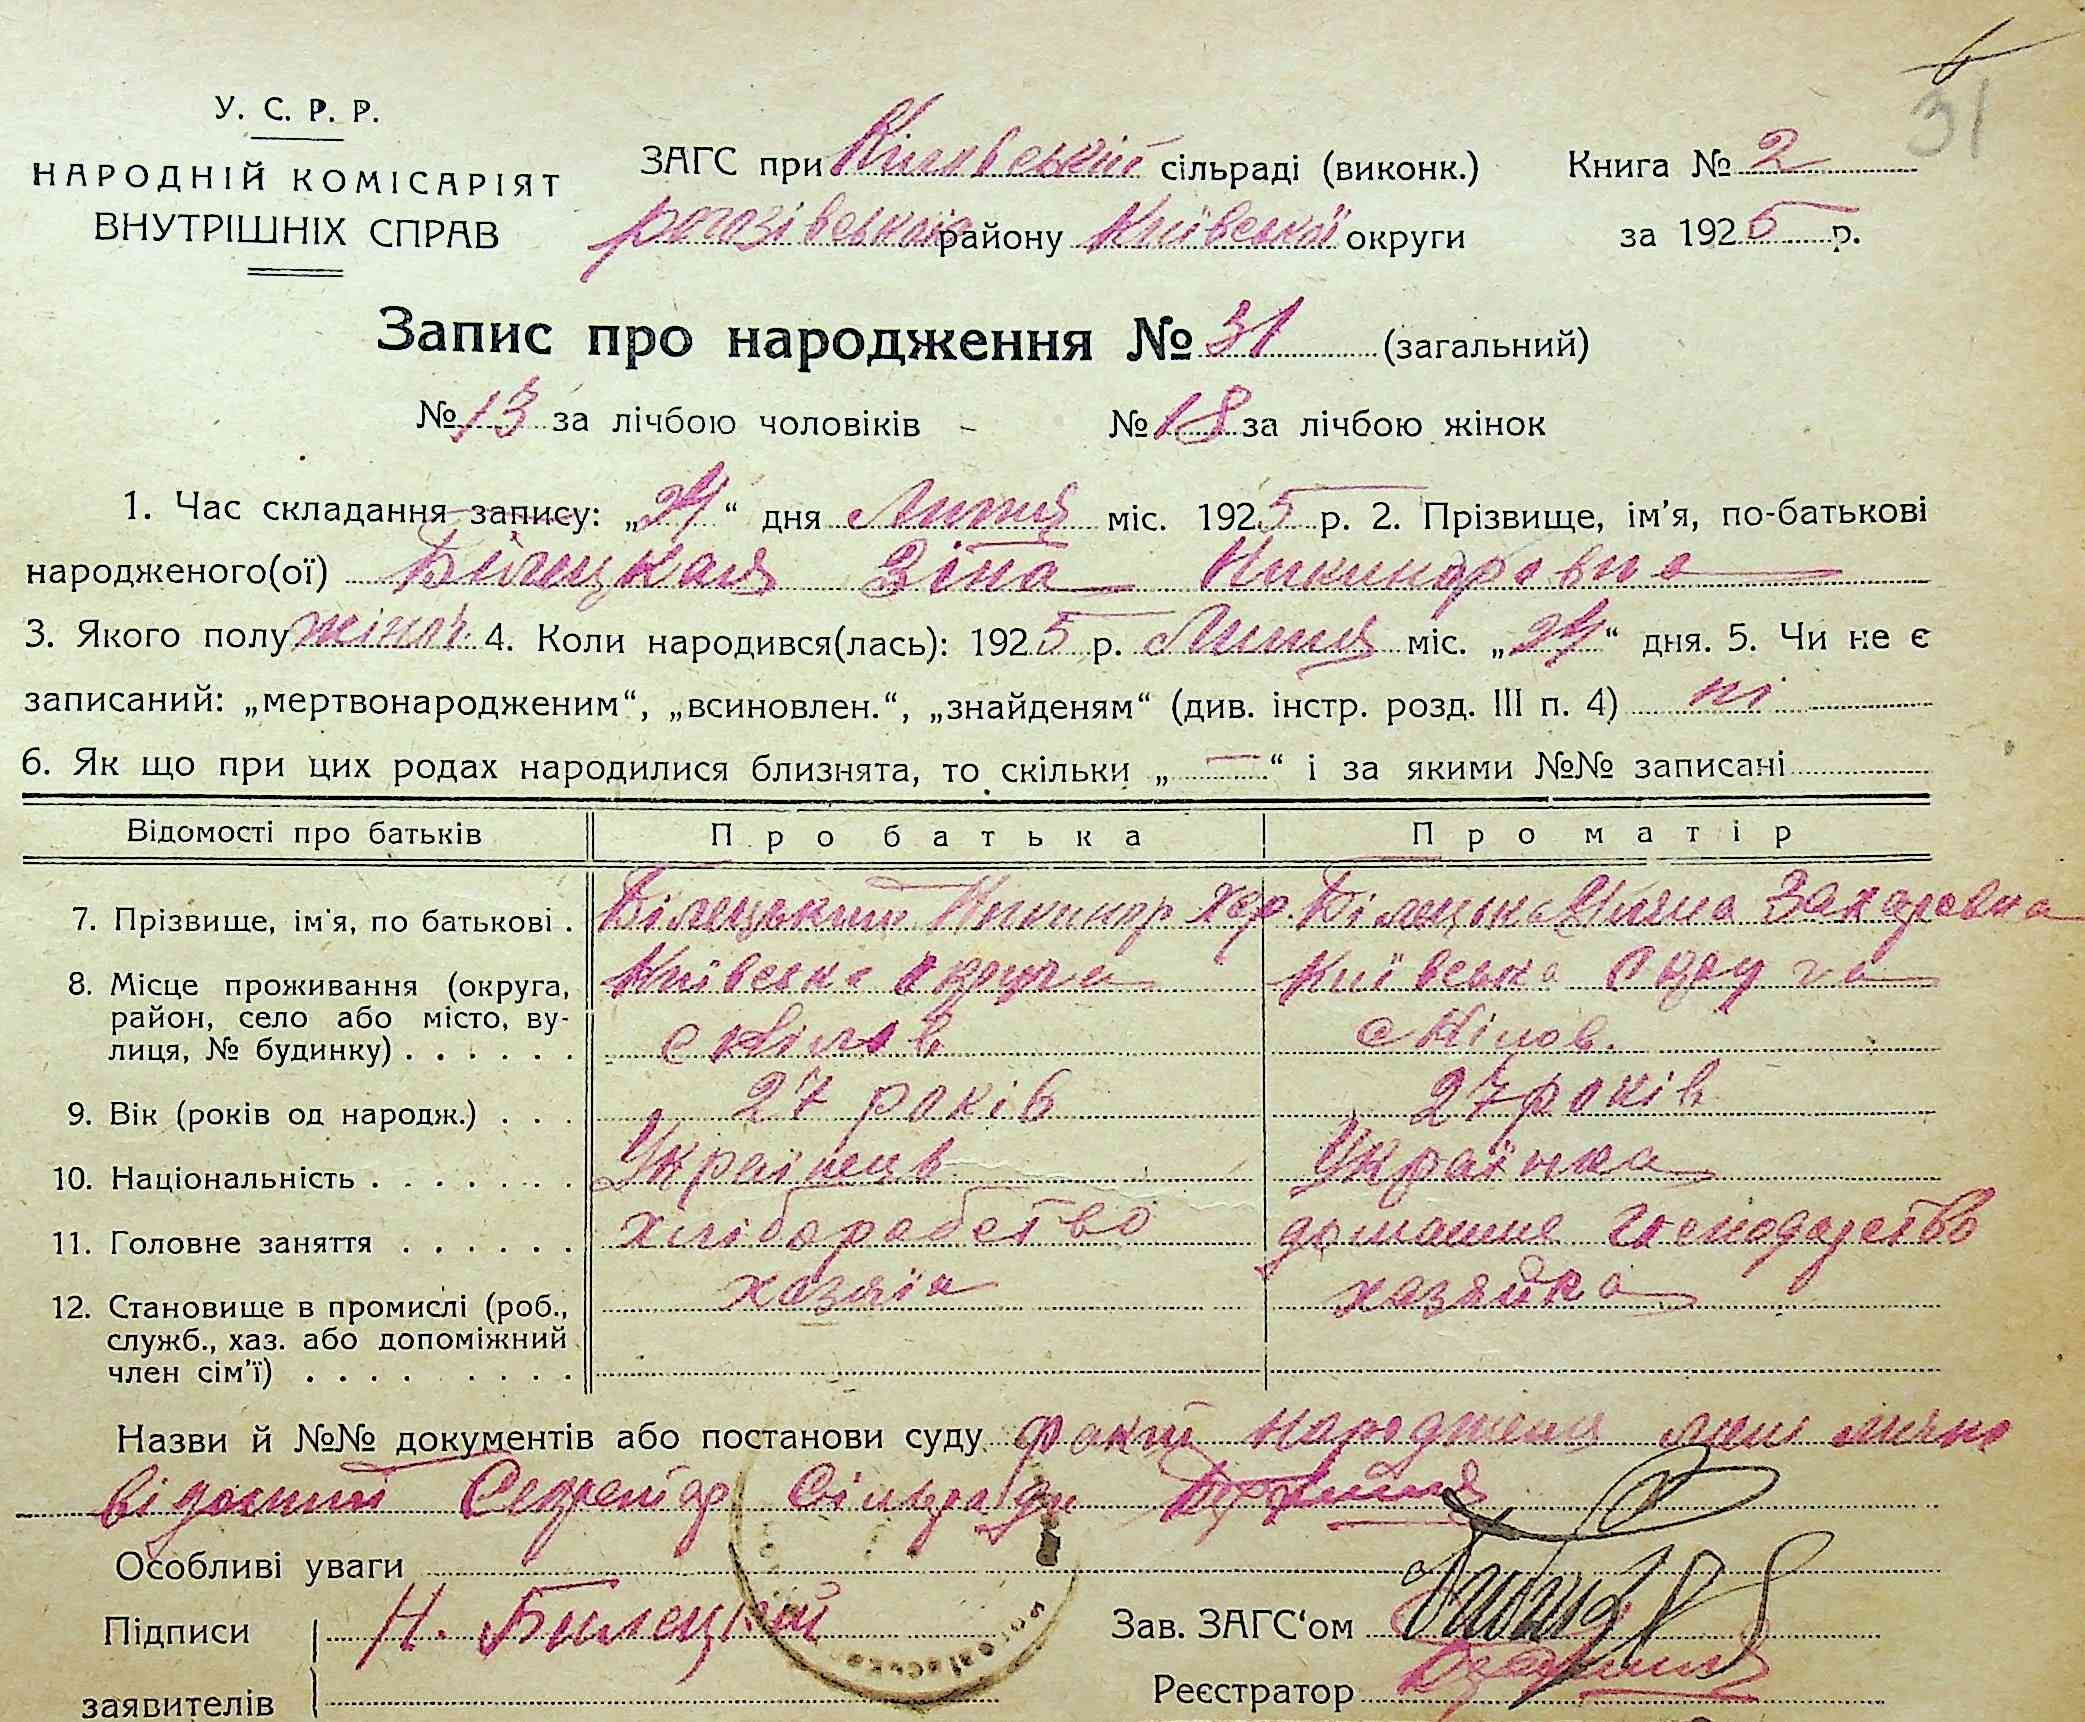 31
У. С. Р. Р.
НАРОДНІЙ КОМІСАРІЯТ
ВНУТРІШНІХ СПРАВ
ЗАГС при сільраді (виконк.)
району Київської округи
Книга № 2
за 1925 р.
Запис про народження № 31 (загальний)
№ 13 за лічбою чоловіків № 18 за лічбою жінок
1. Час складання запису: „24“ дня міс. 1925 р. 2. Прізвище, ім'я, по-батькові
народженого(ої) Білецкая Зіна Никиноровна
3. Якого полу жіноч. 4. Коли народився(лась): 1925 р. міс. „24“ дня. 5. Чи не є
записаний: „мертвонародженим“, „всиновлен.“, „знайденям“ (див. інстр. розд. III п. 4) ні
6. Як що при цих родах народилися близнята, то скільки „—“ і за якими №№ записані
Відомості про батьків Про батька Про матір
7. Прізвище, ім'я, по батькові . Білецький Никинор Хар. Захаровна
8. Місце проживання (округа, Київська округа Київська округа
район, село або місто, ву-
лиця, № будинку) . . . . . . с Кілов с Кілов.
9. Вік (років од народж.) . . . 27 років 27 років
10. Національність . . . . . . . Українець Українка
11. Головне заняття . . . . . . хліборобство домашне господарство
12. Становище в промислі (роб., хазяін хазяйка
служб., хаз. або допоміжний
член сім'ї) . . . . . . . . .
Назви й №№ документів або постанови суду факт народженя мені лично
відомий Секретар Сільради
Особливі уваги
Підписи Н. Билецкий
заявителів
Зав. ЗАГС'ом
Реєстратор